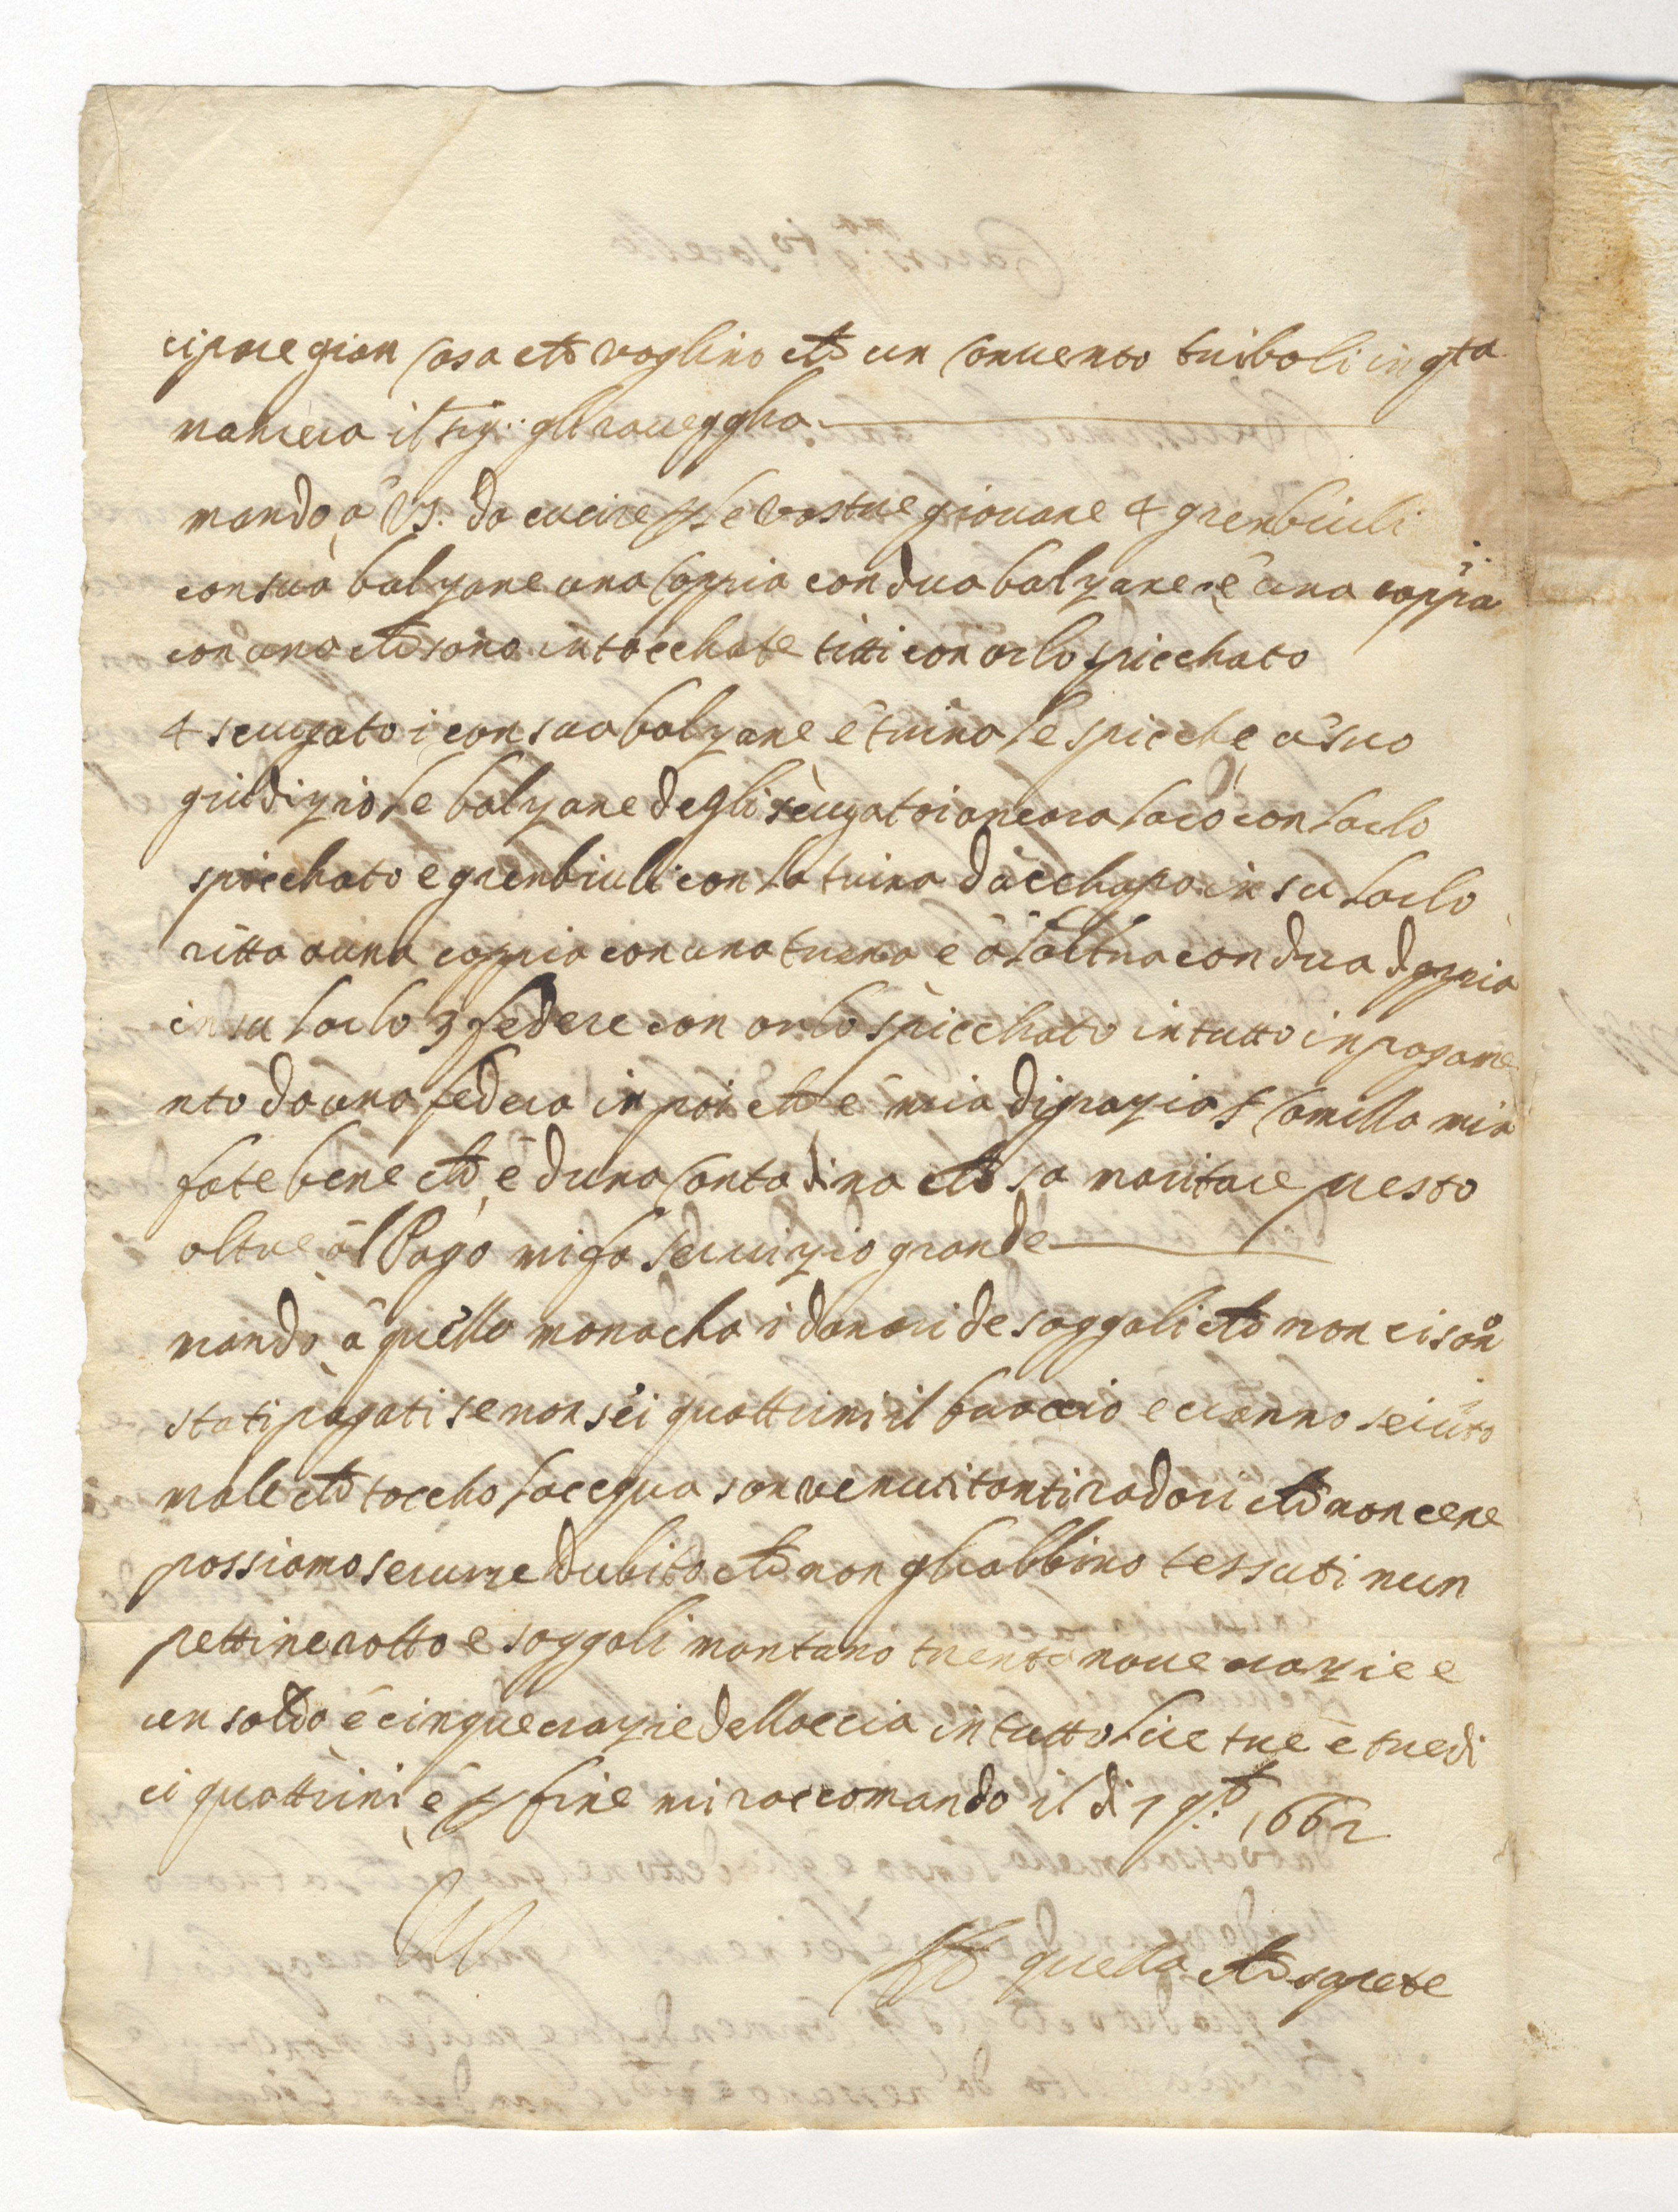 ci pare gran cosa che voglino che un convento triboli in qta
maniera il Sig.: gli raveggha
mando a VS. da cucire p le vostre giovane 4 grenbiuli
con sua balzane una coppia con dua balzane e una coppia
con una che sono intocchate titti con orlo spicchato
4 sciugatoi con sua balzane e trina le spicche a suo
giudizio le balzane degli sciugatoi ancora loro con lorlo
spicchato e grenbiuli con la trina dacchapo in su lorlo
ritta a una coppia con una trina e a laltra con dua doppia
in su lorlo 3 federe con orlo spicchato in tutto in pagame
nto da una federa in poi che e mia di grazia S Camilla mia
fate bene che e duna contadina che sa maritare presto
oltre al Pago mi fa servizio grande
mando a quella monacha i danari de soggoli che non ci son
stati pagati se non sei quattrini il braccio e ci anno seruito
male che toccho lacqua son venuti tanti radori che non cene
possiamo servire dubito che non gli abbino tessuti nun
pettine rotto e soggoli montano trenta nove crazie e
un soldo e cinque crazie dellaccia in tutto lire tre e tredi
ci quattrini e p fine mi raccomando il di 7 9.b 1662
quella che sapete